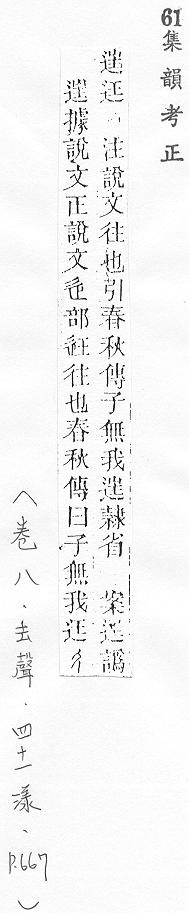 61
集韻考正
迋 注說文往也引春秋傳子無我隸省 案譌
據說文正說文辵部往也春秋傳曰子無我迋彳
(卷八．去聲．四十一漾．P.667)